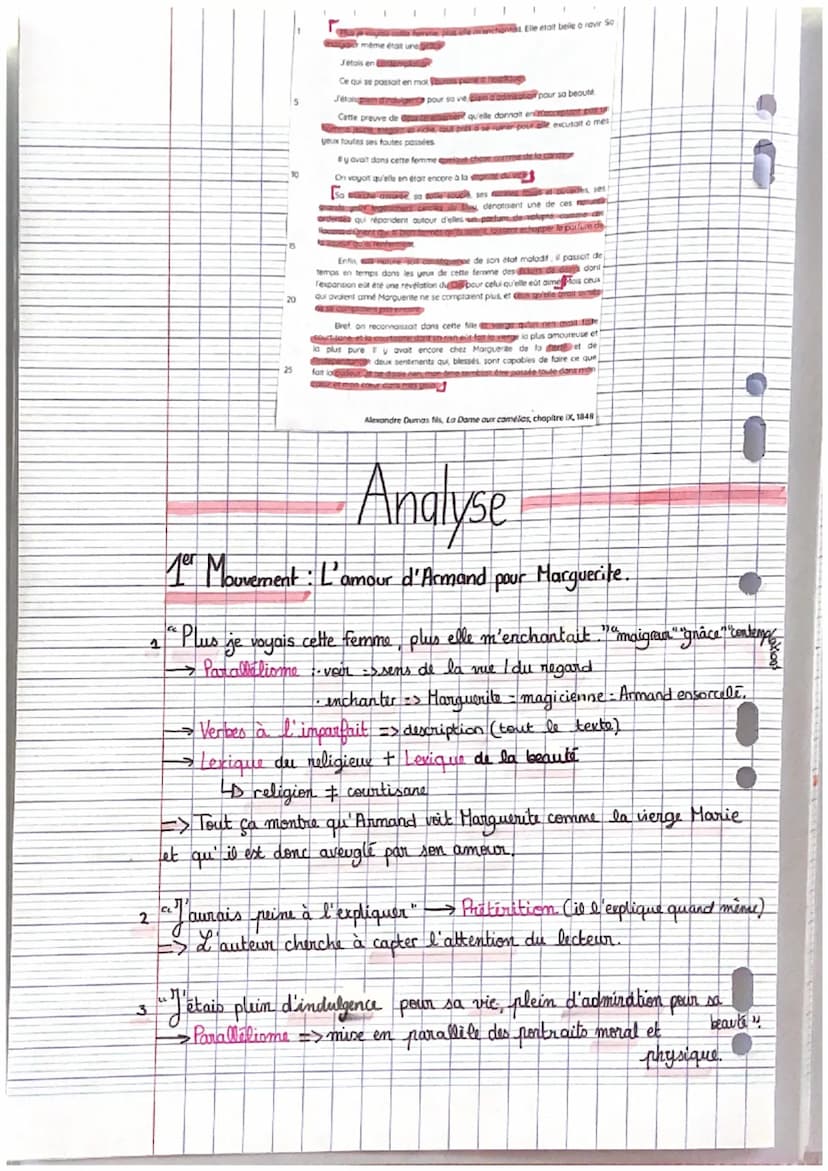 1
Plus je voyais cette femme, plus elle m'enchantait. Elle était belle à ravir. Sa
maigreur même était une grâce.
J'étais en contemplation.
Ce qui se passait en moi, j'aurais peine à l'expliquer.
5
J'étais plein d'indulgence pour sa vie, plein d'admiration pour sa beauté.
Cette preuve de désintéressement qu'elle donnait en n'acceptant pas un
homme jeune, élégant et riche, tout prêt à se ruiner pour elle, excusait à mes
yeux toutes ses fautes passées.
Il y avait dans cette femme quelque chose comme de la candeur.
10
On voyait qu'elle en était encore à la virginité du vice.
Sa marche assurée, sa taille souple, ses narines roses et ouvertes, ses
grands yeux légèrement cerclés de bleu, dénotaient une de ces natures
ardentes qui répandent autour d'elles un parfum de volupté, comme ces
flacons d'Orient qui, si bien fermés qu'ils soient, laissent échapper le parfum de
15
la liqueur qu'ils renferment.
Enfin, soit nature, soit conséquence de son état maladif, il passait de
temps en temps dans les yeux de cette femme des éclairs de désirs dont
l'expansion eût été une révélation du Ciel pour celui qu'elle eût aimé. Mais ceux
20
qui avaient aimé Marguerite ne se comptaient plus, et ceux qu'elle avait aimés
ne se comptaient pas encore.
Bref, on reconnaissait dans cette fille la vierge qu'un rien avait faite
courtisane, et la courtisane dont un rien eût fait la vierge la plus amoureuse et
la plus pure. Il y avait encore chez Marguerite de la fierté et de
l'indépendance : deux sentiments qui, blessés, sont capables de faire ce que
25
fait la pudeur. Je ne disais rien, mon âme semblait être passée toute dans mon
cœur et mon cœur dans mes yeux.
Alexandre Dumas fils, La Dame aux camélias, chapitre IX, 1848
Analyse
1er Mouvement : L'amour d'Armand pour Marguerite.
1 "Plus je voyais cette femme, plus elle m'enchantait." "maigreur" "grâce"
→ Parallélisme : · voir => sens de la vue / du regard
· enchanter => Marguerite = magicienne = Armand ensorcelé.
→ Verbes à l'imparfait => description (tout le texte)
→ Lexique du religieux + Lexique de la beauté
↳ religion ≠ courtisane
=> Tout ça montre qu'Armand voit Marguerite comme la vierge Marie
et qu'il est donc aveuglé par son amour.
2 "J'aurais peine à l'expliquer" → Prétérition (il l'explique quand même)
=> L'auteur cherche à capter l'attention du lecteur.
3 "J'étais plein d'indulgence pour sa vie, plein d'admiration pour sa
beauté".
→ Parallélisme => mise en parallèle des portraits moral et
physique.